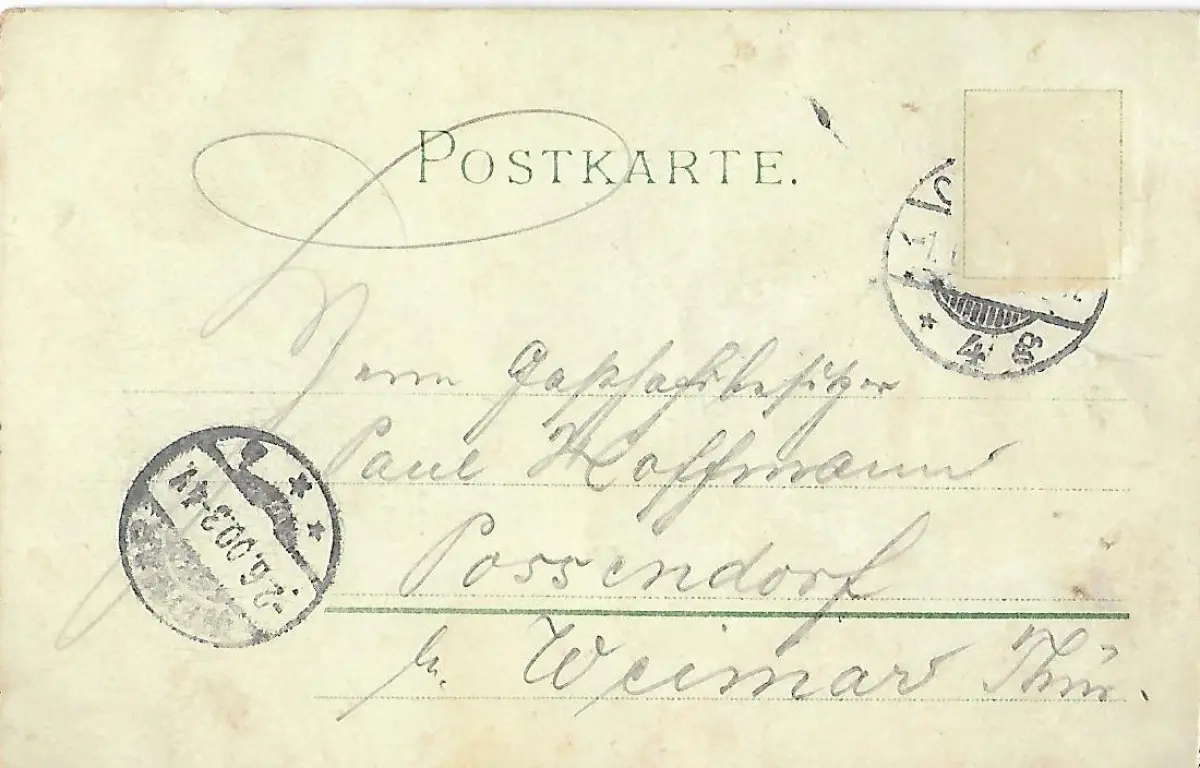 POSTKARTE.
Herrn Gasthofsbesitzer
Paul Hoffmann
Possendorf
b. Weimar Thür.
-2.6.00.3-4V
4 g